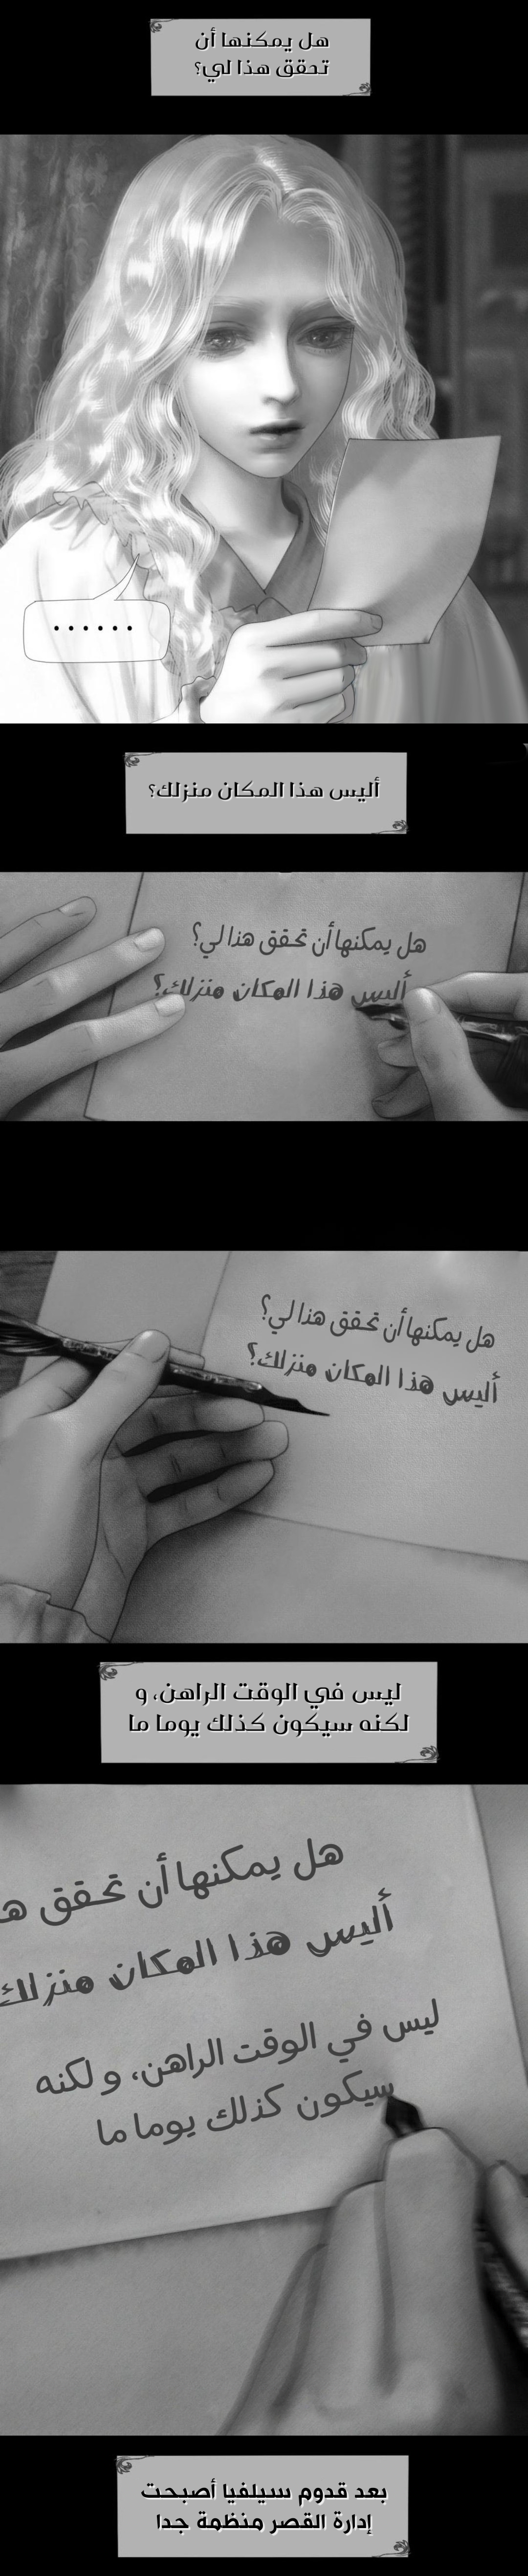 هل يمكنها أن
تحقق هذا لي؟
......
أليس هذا المكان منزلك؟
هل يمكنها أن تحقق هذا لي؟
أليس هذا المكان منزلك؟
هل يمكنها أن تحقق هذا لي؟
أليس هذا المكان منزلك؟
ليس في الوقت الراهن، و
لكنه سيكون كذلك يوما ما
هل يمكنها أن تحقق هـ
أليس هذا المكان منزلك
ليس في الوقت الراهن، و لكنه
سيكون كذلك يوما ما
بعد قدوم سيلفيا أصبحت
إدارة القصر منظمة جدا